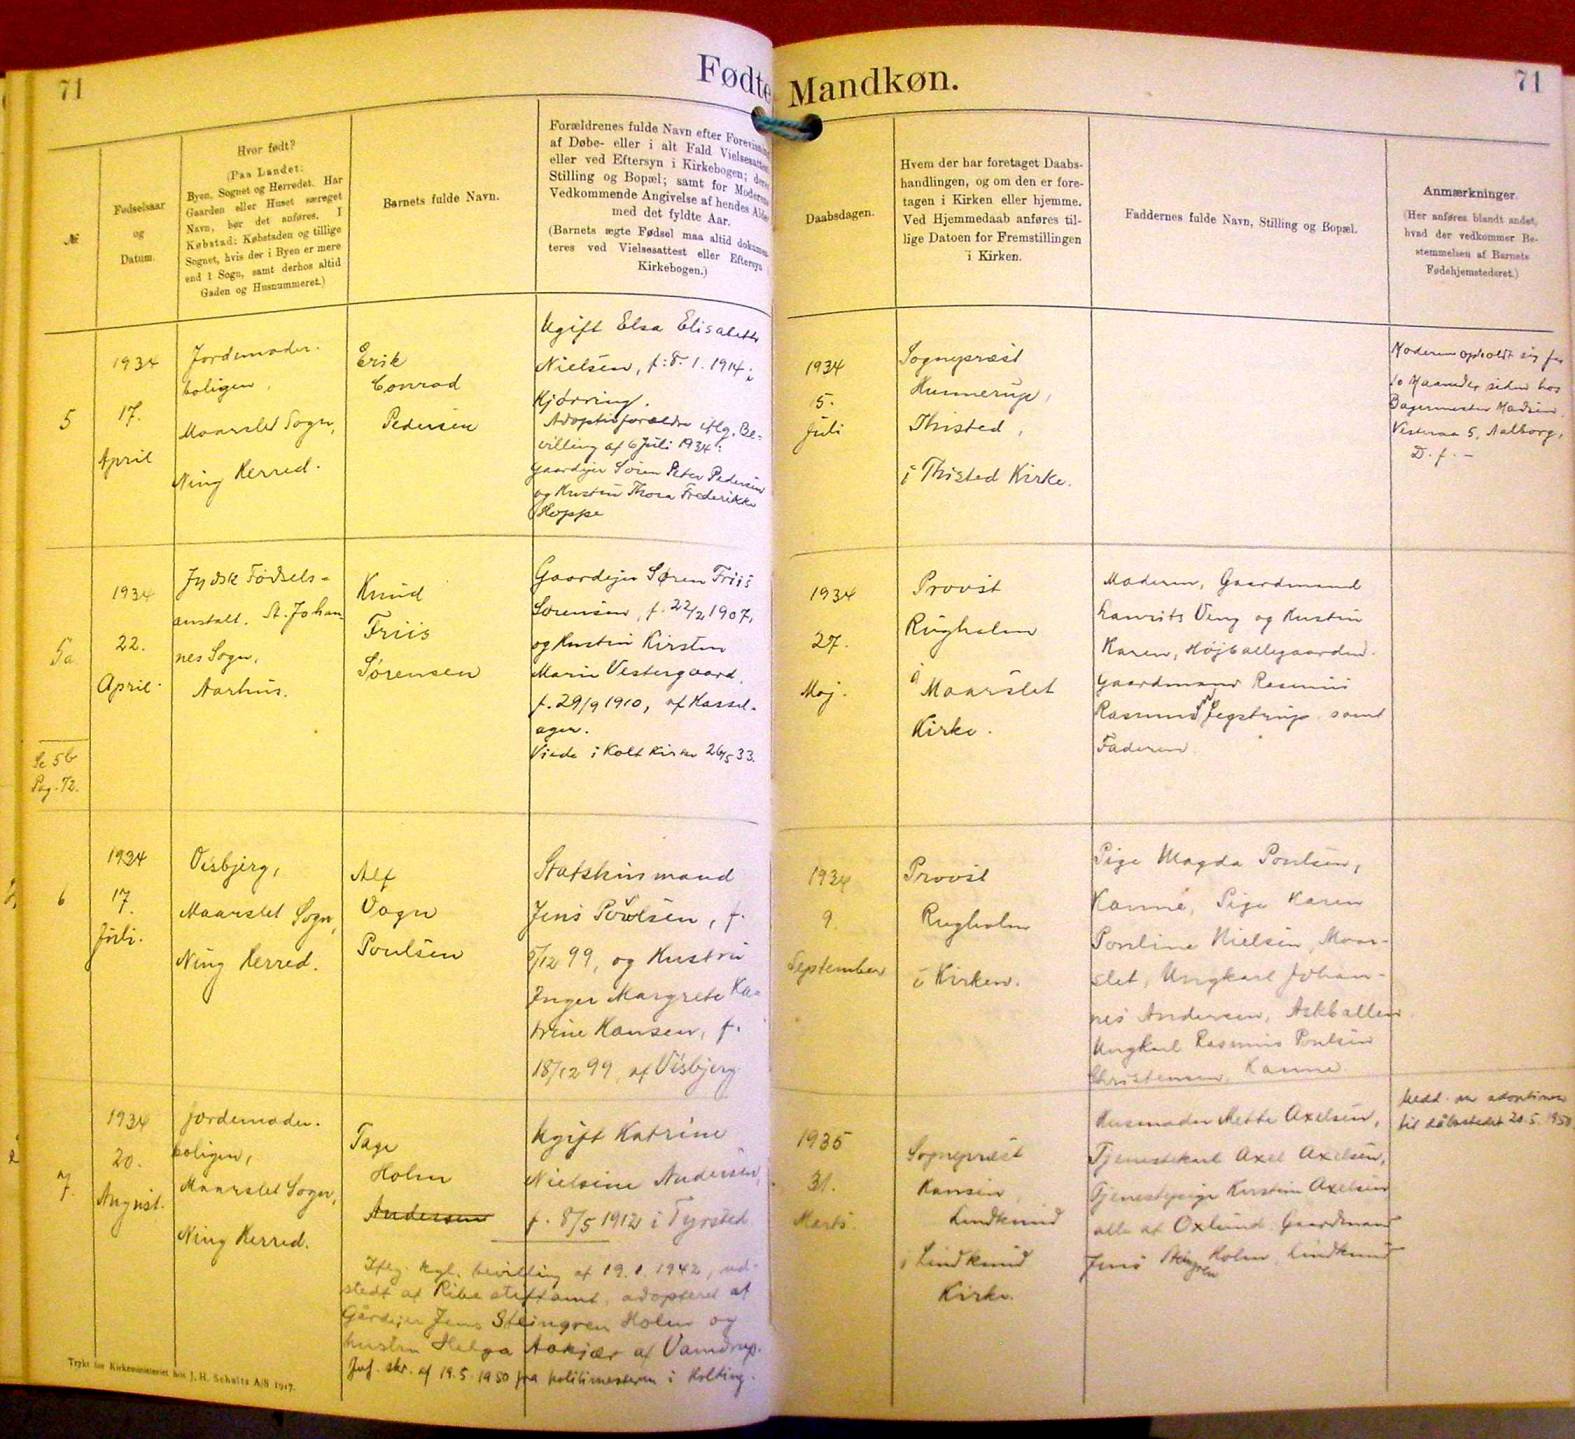 71
Fødte Mandkøn.
71
№
Fødselsaar
og
Datum.
Hvor født?
(Paa Landet:
Byen, Sognet og Herredet. Har
Gaarden eller Huset særeget
Navn, bør det anføres. I
Købstad: Købstaden og tillige
Sognet, hvis der i Byen er mere
end 1 Sogn, samt derhos altid
Gaden og Husnummeret.)
Barnets fulde Navn.
Forældrenes fulde Navn efter Forevisning
af Døbe- eller i alt Fald Vielsesattest
eller ved Eftersyn i Kirkebogen; deres
Stilling og Bopæl; samt for Moderens
Vedkommende Angivelse af hendes Alder
med det fyldte Aar.
(Barnets ægte Fødsel maa altid dokumen-
teres ved Vielsesattest eller Eftersyn
Kirkebogen.)
Daabsdagen.
Hvem der har foretaget Daabs-
handlingen, og om den er fore-
tagen i Kirken eller hjemme.
Ved Hjemmedaab anføres til-
lige Datoen for Fremstillingen
i Kirken.
Faddernes fulde Navn, Stilling og Bopæl.
Anmærkninger.
(Her anføres blandt andet,
hvad der vedkommer Be-
stemmelsen af Barnets
Fødehjemstedsret.)
5
1934
17.
April
Jordemoder-
boligen,
Maarslet Sogn,
Ning Herred.
Erik
Conrad
Pedersen
Ugift Elsa Elisabeth
Nielsen, f: 8. 1. 1914 i
Hjørring.
Adoptivforældre iflg. Be-
villing af 6 Juli 1934:
Gaardejer Søren Peter Pedersen
og Hustru Thora Frederikke
Hoppe
1934
15.
Juli
Sognepræst
Hunnerup,
Thisted,
i Thisted Kirke.
Moderen opholdt sig for
10 Maaneder siden hos
Bagermester Madsen
Vesteraa 5, Aalborg,
D. f. -
5a
1934
22.
April.
Jydsk Fødsels-
anstalt. St. Johan-
nes Sogn,
Aarhus.
Knud
Friis
Sørensen
Gaardejer Søren Friis
Sørensen, f. 22/2 1907,
og Hustru Kirsten
Marie Vestergaard,
f. 29/9 1910, af Hassel-
ager.
Viede i Kolt Kirke 26/5 33.
Se 5b
Pag. 72.
1934
27.
Maj.
Provst
Rugholm
i Maarslet
Kirke.
Moderen, Gaardmand
Laurits Veng og Hustru
Karen, Højballegaarden.
Gaardmand Rasmus
Rasmussen Jegstrup samt
Faderen
6
1934
17.
Juli.
Visbjerg,
Maarslet Sogn,
Ning Herred.
Alf
Vagn
Poulsen
Statshusmand
Jens Poulsen, f.
5/12 99, og Hustru
Inger Margrete Ka-
trine Hansen, f.
18/12 99, af Visbjerg
1934
9.
September
Provst
Rugholm
i Kirken.
Pige Magda Poulsen,
Hanne, Pige Karen
Pouline Nielsen, Maar-
slet, Ungkarl Johan-
nes Andersen, Askballen
Ungkarl Rasmus Poulsen
Christensen, Hanne.
7.
1934
20.
August.
Jordemoder-
boligen,
Maarslet Sogn,
Ning Herred.
Tage
Holm
Andersen
Ugift Katrine
Nielsine Andersen,
f. 8/5 1912 i Tyrsted
Iflg. kgl. bevilling af 19. 1. 1942, ud-
stedt af Ribe stiftamt, adopteret af
Gårdejer Jens Steingren Holm og
hustru Helga Aakjær af Vamdrup.
Jvf. skr. af 19.5.1950 fra politimesteren i Kolding.
1935
31.
Marts.
Sognepræst
Hansen
Lindknud
i Lindknud
Kirke.
Husmoder Mette Axelsen,
Tjenestekarl Axel Axelsen,
Tjenestepige Kirstine Axelsen
alle af Oxlund. Gaardmand
Jens Steingren Holm, Lindknud
Medd. om adoptionen
til dåbsstedet 20.5.1950.
Trykt for Kirkeministeriet hos J. H. Schultz A/S 1917.